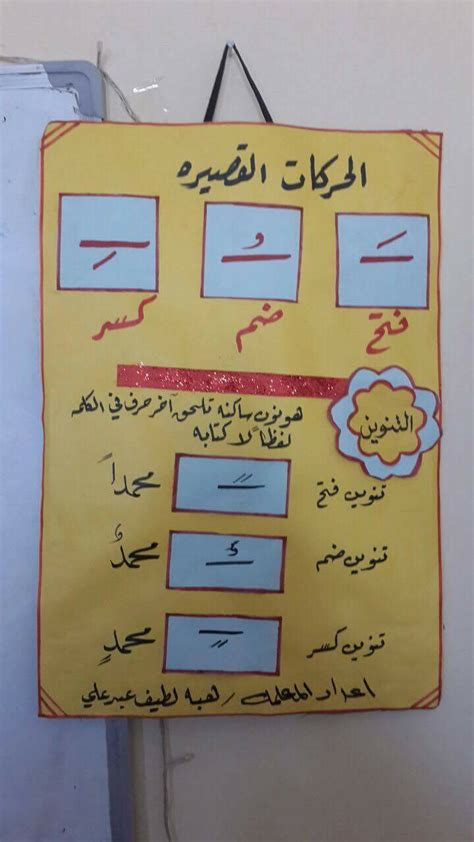 الحركات القصيره
فتح ضم كسر
التنوين
هو نون ساكنه تلحق آخر حرف في الكلمه
لفظاً لا كتابه
تنوين فتح محمداً
تنوين ضم محمدٌ
تنوين كسر محمدٍ
اعداد المعلمه / هبه لطيف عبد علي